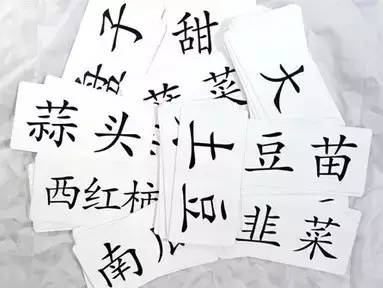 子
甜
菜
大
蒜头
土豆
豆苗
西红柿
韭菜
南